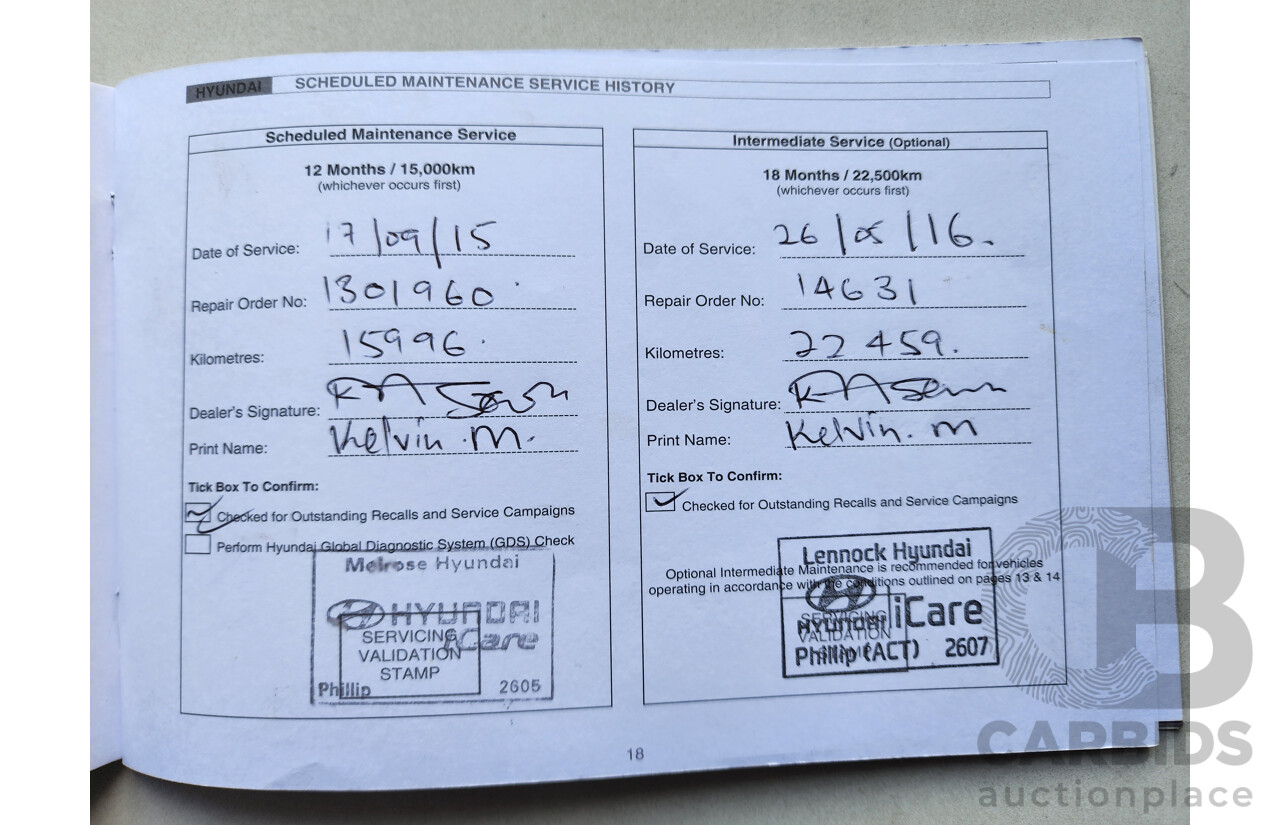 HYUNDAI SCHEDULED MAINTENANCE SERVICE HISTORY
Scheduled Maintenance Service
12 Months / 15,000km
(whichever occurs first)
Date of Service: 17/09/15
Repair Order No: 1301960
Kilometres: 15996.
Dealer's Signature:
Print Name: Kelvin.M.
Tick Box To Confirm:
Checked for Outstanding Recalls and Service Campaigns
Perform Hyundai Global Diagnostic System (GDS) Check
Melrose Hyundai
HYUNDAI
iCare
SERVICING
VALIDATION
STAMP
Phillip 2605
Intermediate Service (Optional)
18 Months / 22,500km
(whichever occurs first)
Date of Service: 26/05/16.
Repair Order No: 14631
Kilometres: 22459.
Dealer's Signature:
Print Name: Kelvin. M
Tick Box To Confirm:
Checked for Outstanding Recalls and Service Campaigns
Optional Intermediate Maintenance is recommended for vehicles
operating in accordance with the conditions outlined on pages 13 & 14
Lennock Hyundai
HYUNDAI iCare
SERVICING
VALIDATION
STAMP
Phillip (ACT) 2607
18
CARBIDS
auctionplace